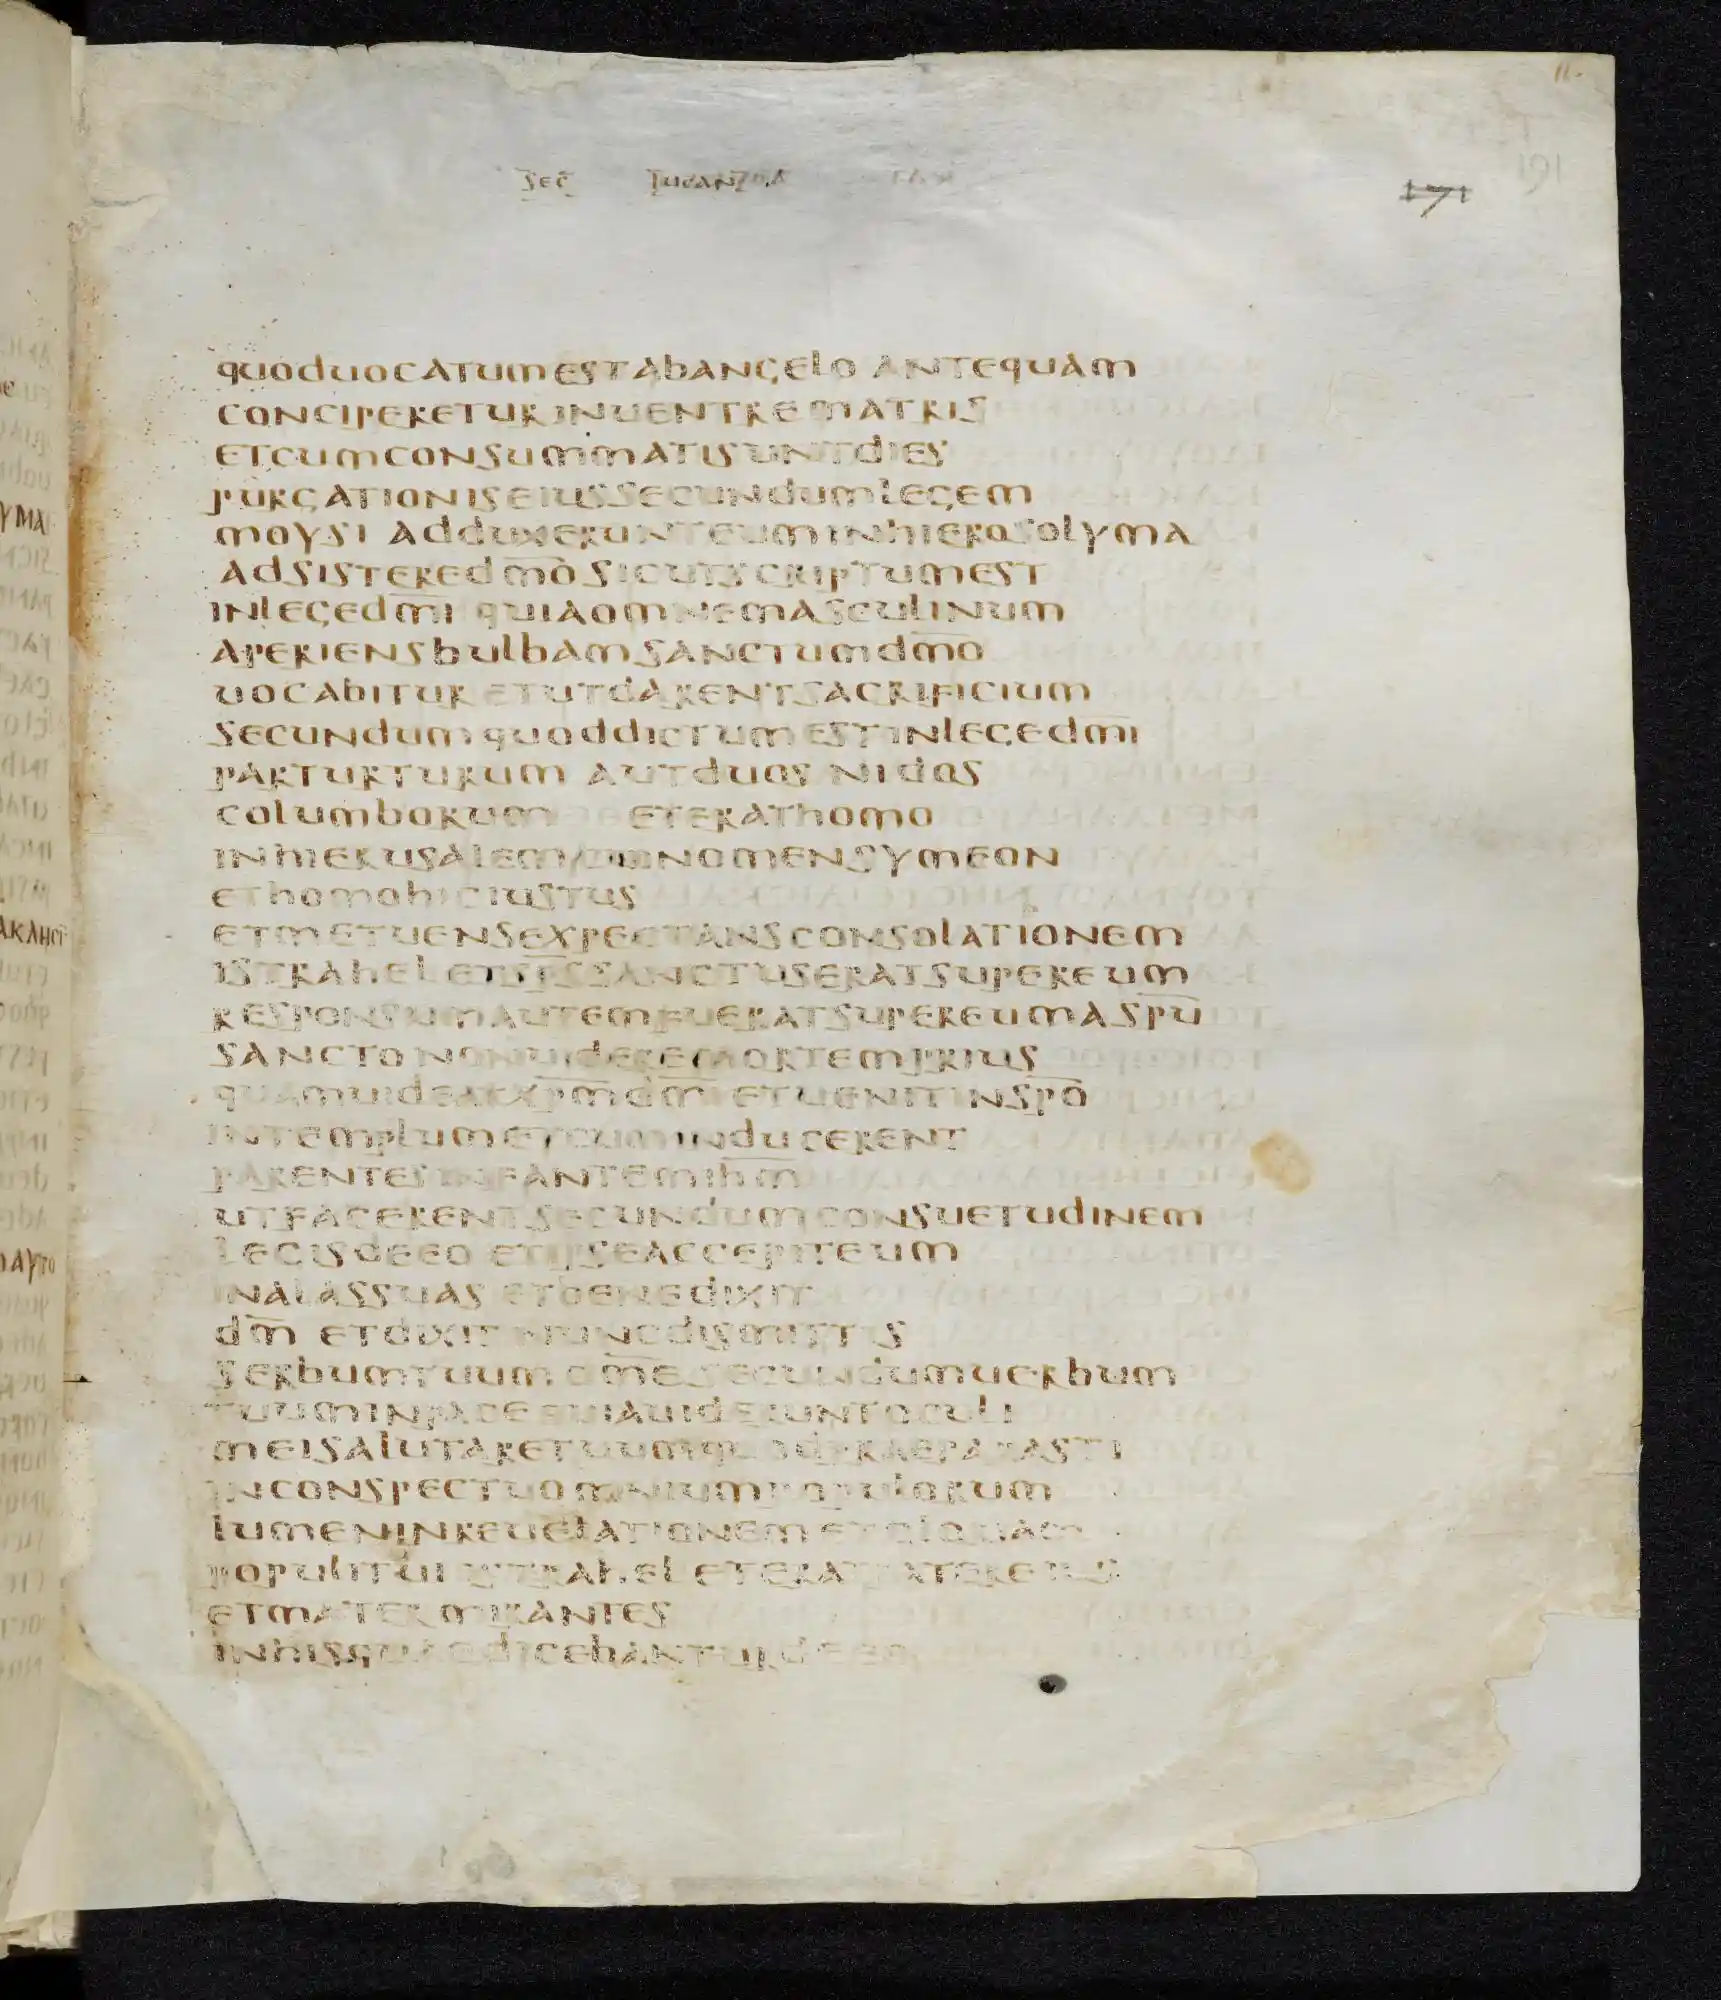 sec lucan
171
191
quoduocatumestabangelo antequam
concipereturinuentrematris
etcumconsummatisuntdies
purgationiseiussecundumlegem
moysi adduxerunteuminhierosolyma
adsisteredm̅o sicutscriptumest
inlegedm̅i quiaomnemasculinum
aperiensbulbamsanctumdm̅o
uocabitur etutdarentsacrificium
secundumquoddictumestinlegedm̅i
parturturum autduos nidos
columborum eterathomo
inhierusalem nomensymeon
ethomohiciustus
etmetuensexpectansconsolationem
istrahel etsp̅ssanctuseratsupereum
responsumautemfueratsupereumasp̅u
sanctononuideremortemprius
quamuideatxp̅mdm̅i etuenitinsp̅o
intemplumetcuminducerent
parentesinfantemih̅m
utfacerentsecundumconsuetudinem
legisdeeo etipseaccepiteum
inalassuas etbenedixit
dm̅ etdixit nuncdismittis
serbumtuumdm̅e secundumuerbum
tuuminpace quiauideruntoculi
meisalutaretuumquodpraeparasti
inconspectuomniumpopulorum
lumeninreuelationem etgloriam
populitui istrahel eteratpatereius
etmater mirantes
inhisquaedicebanturdeeo